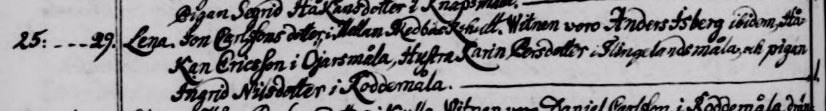 Pigan Segrid Håkansdotter i Knapsmåla.
25: - - - - 29. Lena. Jon Carlssons dotter i Mellan Witnen voro Anders Isberg ibidem, Hå-
kan Ericsson i Djarsmåla, Hustru Karin Persdotter i Slingelandsmåla, och pigan
Ingrid Nilsdotter i Roddemåla.
Witnen voro Daniel Carlsson i Roddemåla,